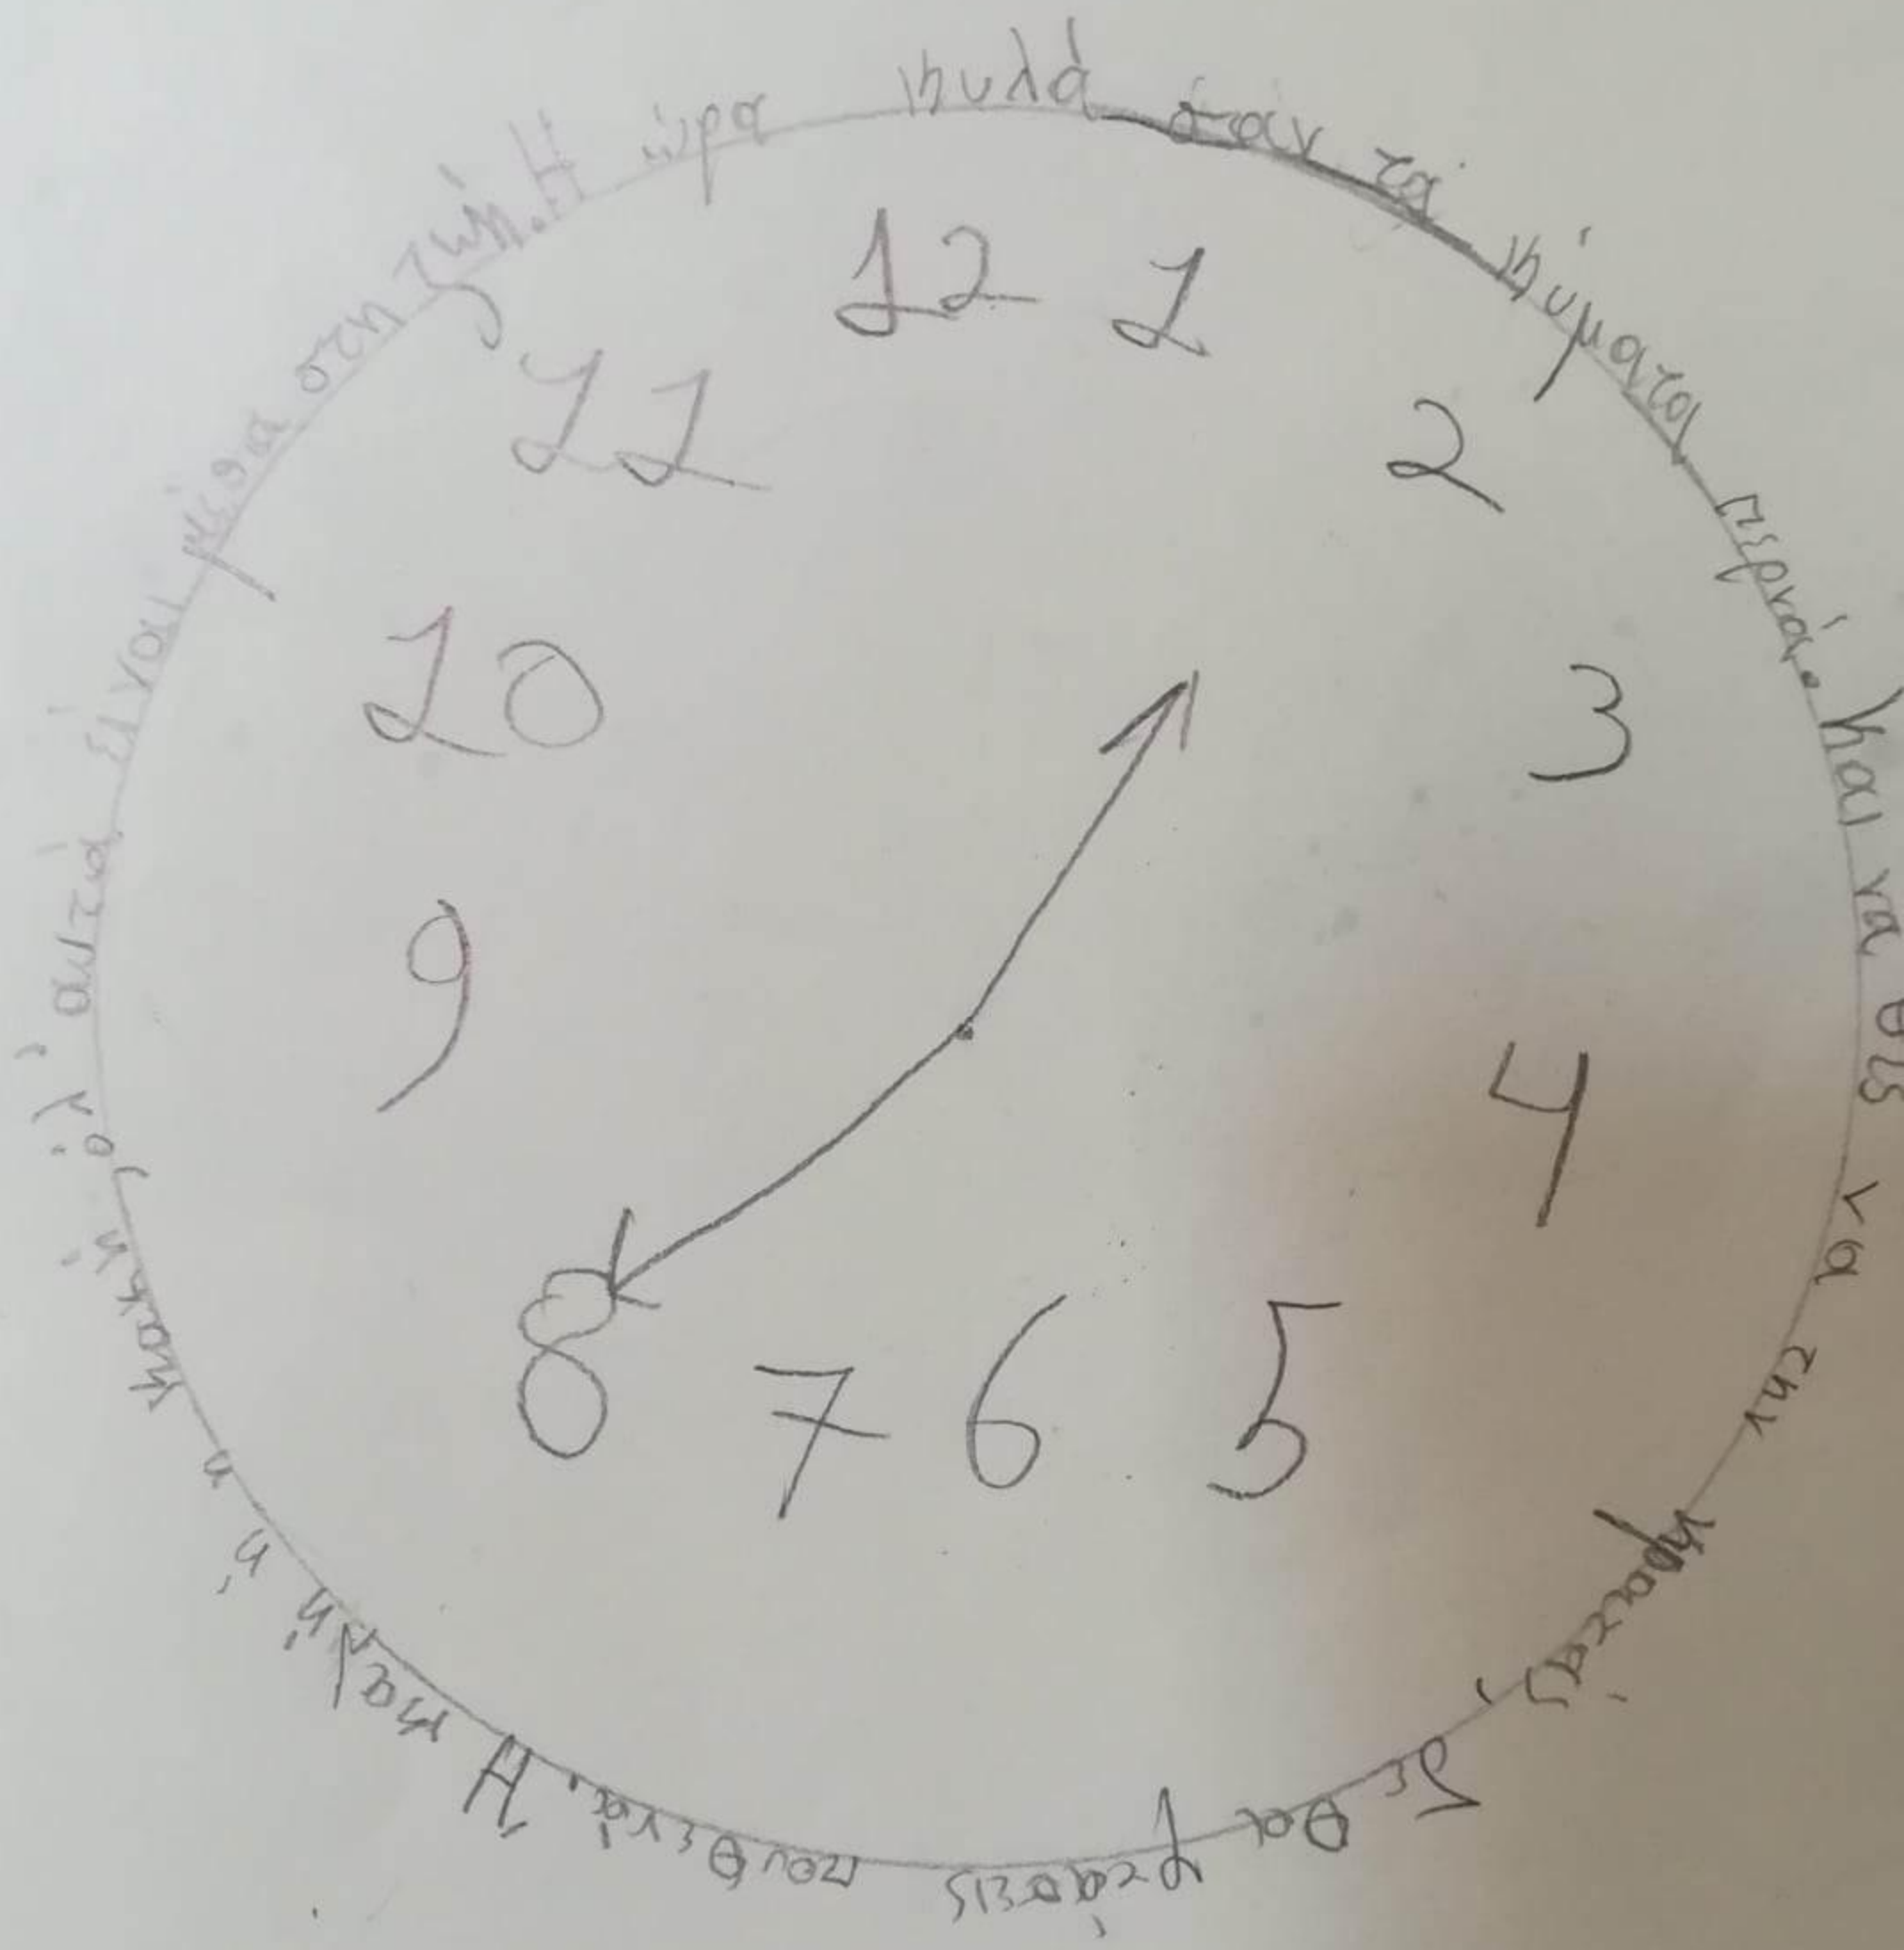 Η ώρα κυλά σαν τα κύματα περνά. Και να θες να την κρατάς, Δε θα φτάσεις πουθενά. Η καλή ή η κακή, όλ' αυτά είναι μέσα στη ζωή.
12
1
2
3
4
5
6
7
8
9
10
11